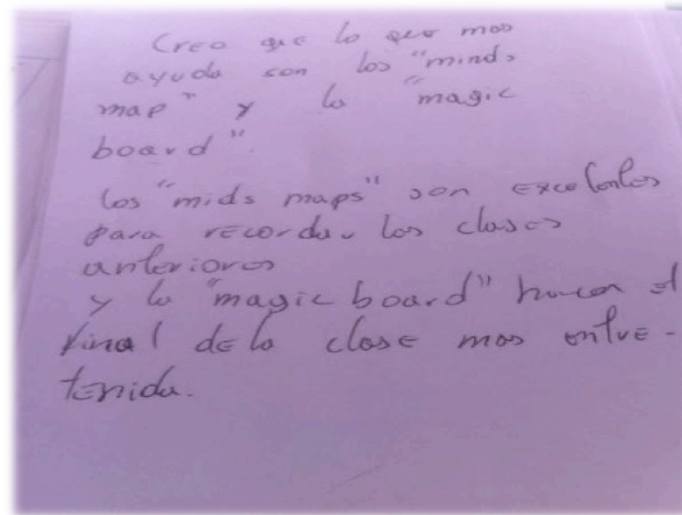 Creo que lo que mas
ayuda son los "minds
map" y la "magic
board".
los "mids maps" son excelentes
para recordar los clases
anteriores
y la "magic board" hacen el
final de la clase mas entre-
tenida.